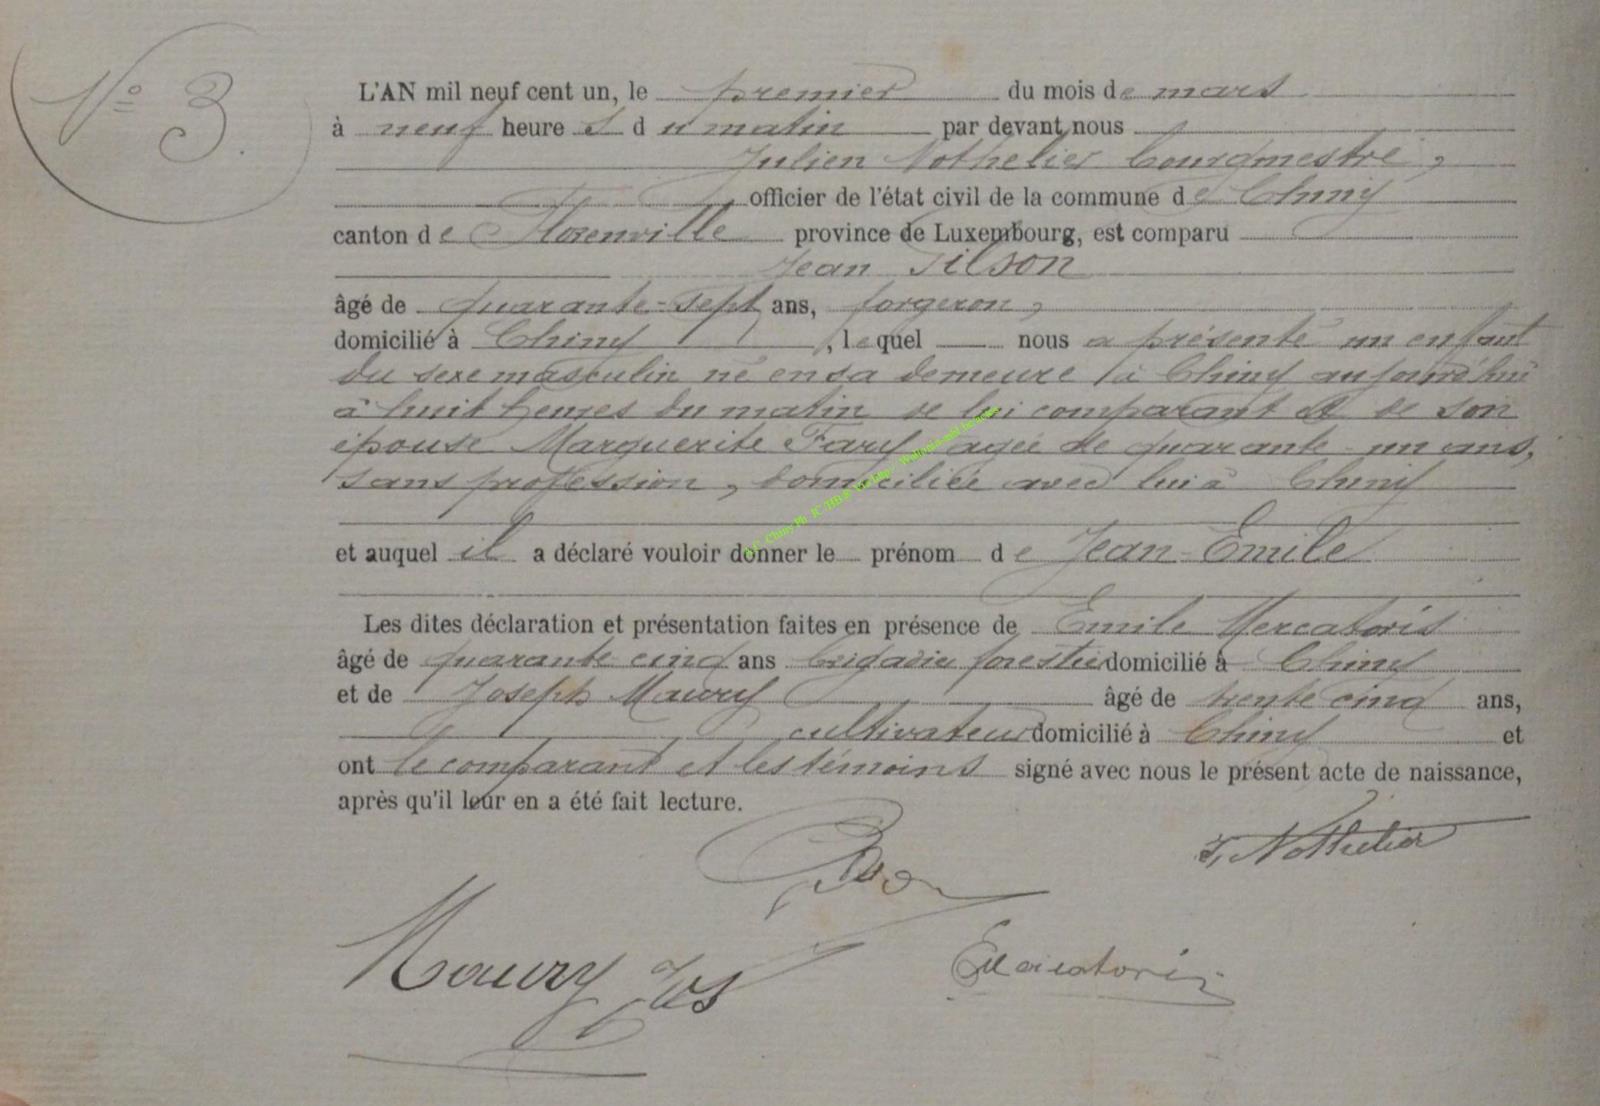 N° 3.
L'AN mil neuf cent un, le premier du mois de mars
à neuf heures du matin par devant nous
Julien Nothelier bourgmestre,
officier de l'état civil de la commune de Chiny
canton de Florenville province de Luxembourg, est comparu
Jean Gilson
âgé de quarante-sept ans, forgeron,
domicilié à Chiny, lequel nous a présenté un enfant
du sexe masculin né en sa demeure à Chiny aujourd'hui
à huit heures du matin de lui comparant et de son
épouse Marguerite Fary agée de quarante-un ans,
sans profession, domiciliée avec lui à Chiny
et auquel il a déclaré vouloir donner le prénom de Jean-Emile
Les dites déclaration et présentation faites en présence de Emile Mercatoris
âgé de quarante cinq ans brigadier forestier domicilié à Chiny
et de Joseph Maury âgé de trente cinq ans,
cultivateur domicilié à Chiny et
ont le comparant et les témoins signé avec nous le présent acte de naissance,
après qu'il leur en a été fait lecture.
J. Nothelier
Maury Jos